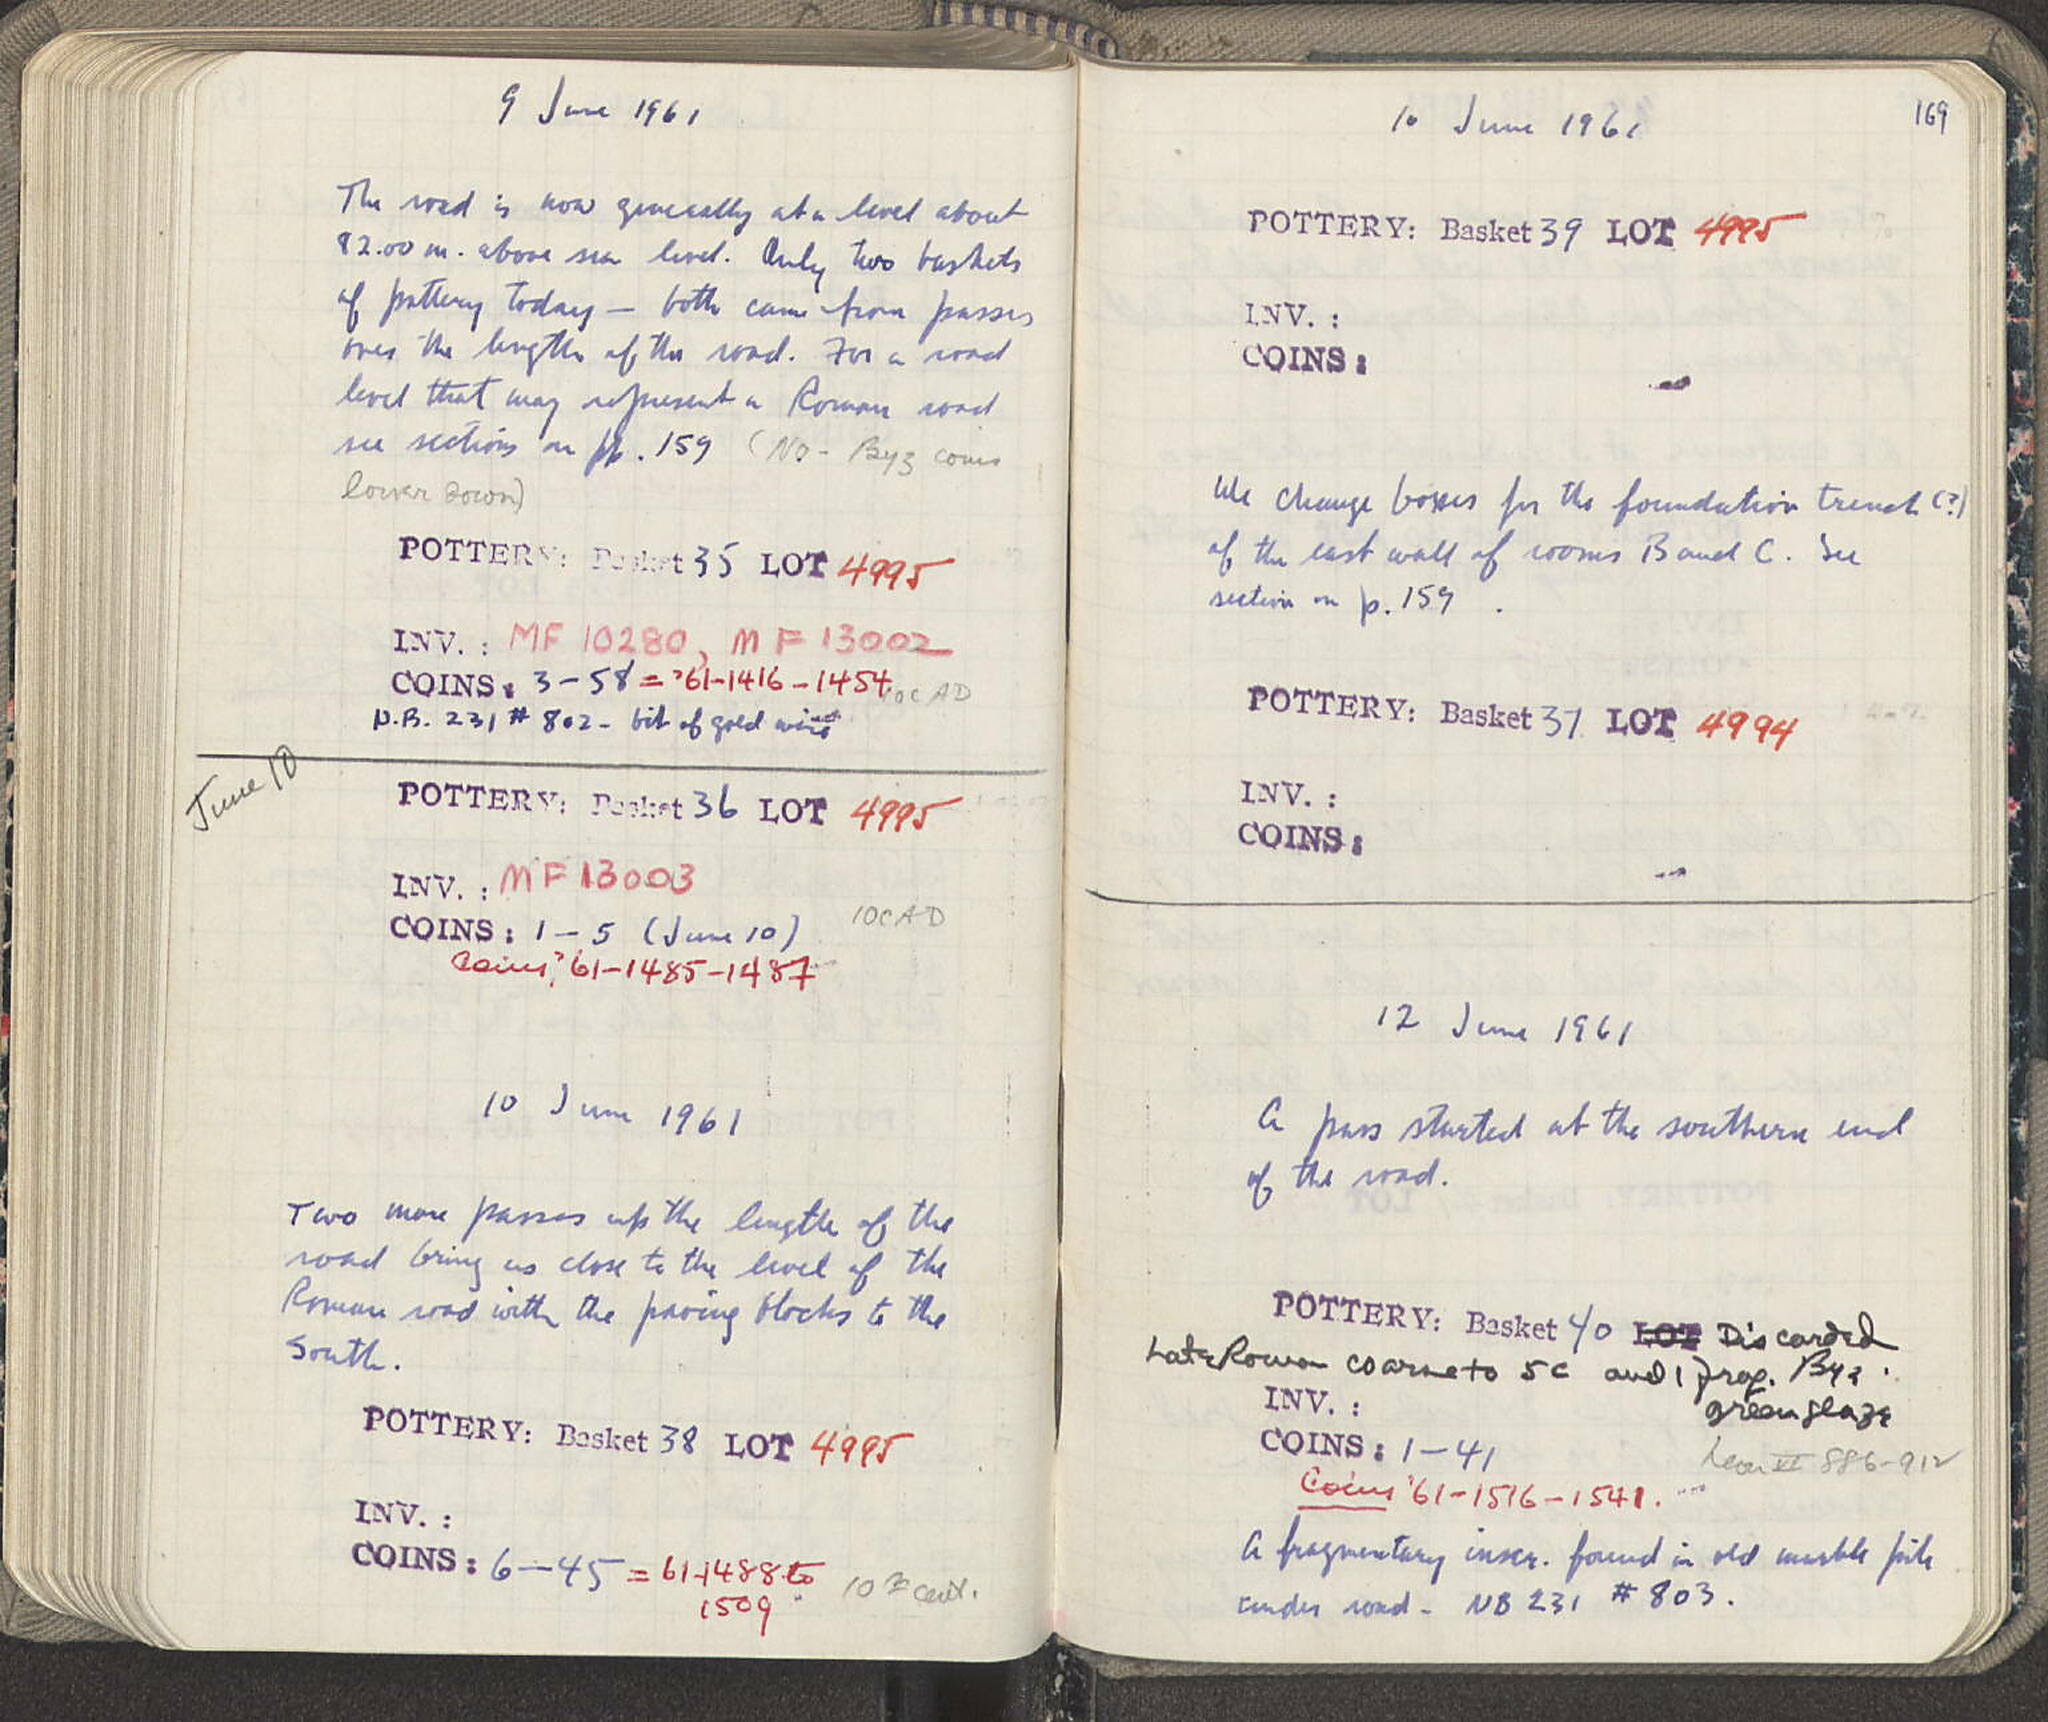 9 June 1961
The road is now generally at a level about
82.00 m. above sea level. Only two baskets
of pottery today — both came from passes
over the length of the road. For a road
level that may represent a Roman road
see sections on pp. 159 (No - Byz coins
lower down)
POTTERY: Basket 35 LOT 4995
INV. : MF 10280, MF 13002
COINS: 3 - 58 = '61-1416 - 1454 10C AD
N.B. 231 # 802 - bit of gold wire
June 10
POTTERY: Basket 36 LOT 4995
INV. : MF 13003
COINS: 1 - 5 (June 10) 10C AD
Coins '61-1485-1487
10 June 1961
Two more passes up the length of the
road bring us close to the level of the
Roman road with the paving blocks to the
South.
POTTERY: Basket 38 LOT 4995
INV. :
COINS: 6 - 45 = 61-1488 to
1509 10th cent.
169
10 June 1961
POTTERY: Basket 39 LOT 4995
INV. :
COINS:
We change boxes for the foundation trench (?)
of the east wall of rooms B and C. See
section on p. 159 .
POTTERY: Basket 37 LOT 4994
INV. :
COINS:
12 June 1961
A pass started at the southern end
of the road.
POTTERY: Basket 40 LOT Discarded
Late Roman coarse to 5C and 1 frag. Byz.
green glaze
INV. :
COINS: 1 - 41
Leon VI 886-912
Coins '61-1516-1541.
A fragmentary inscr. found in old marble pile
under road - NB 231 # 803.